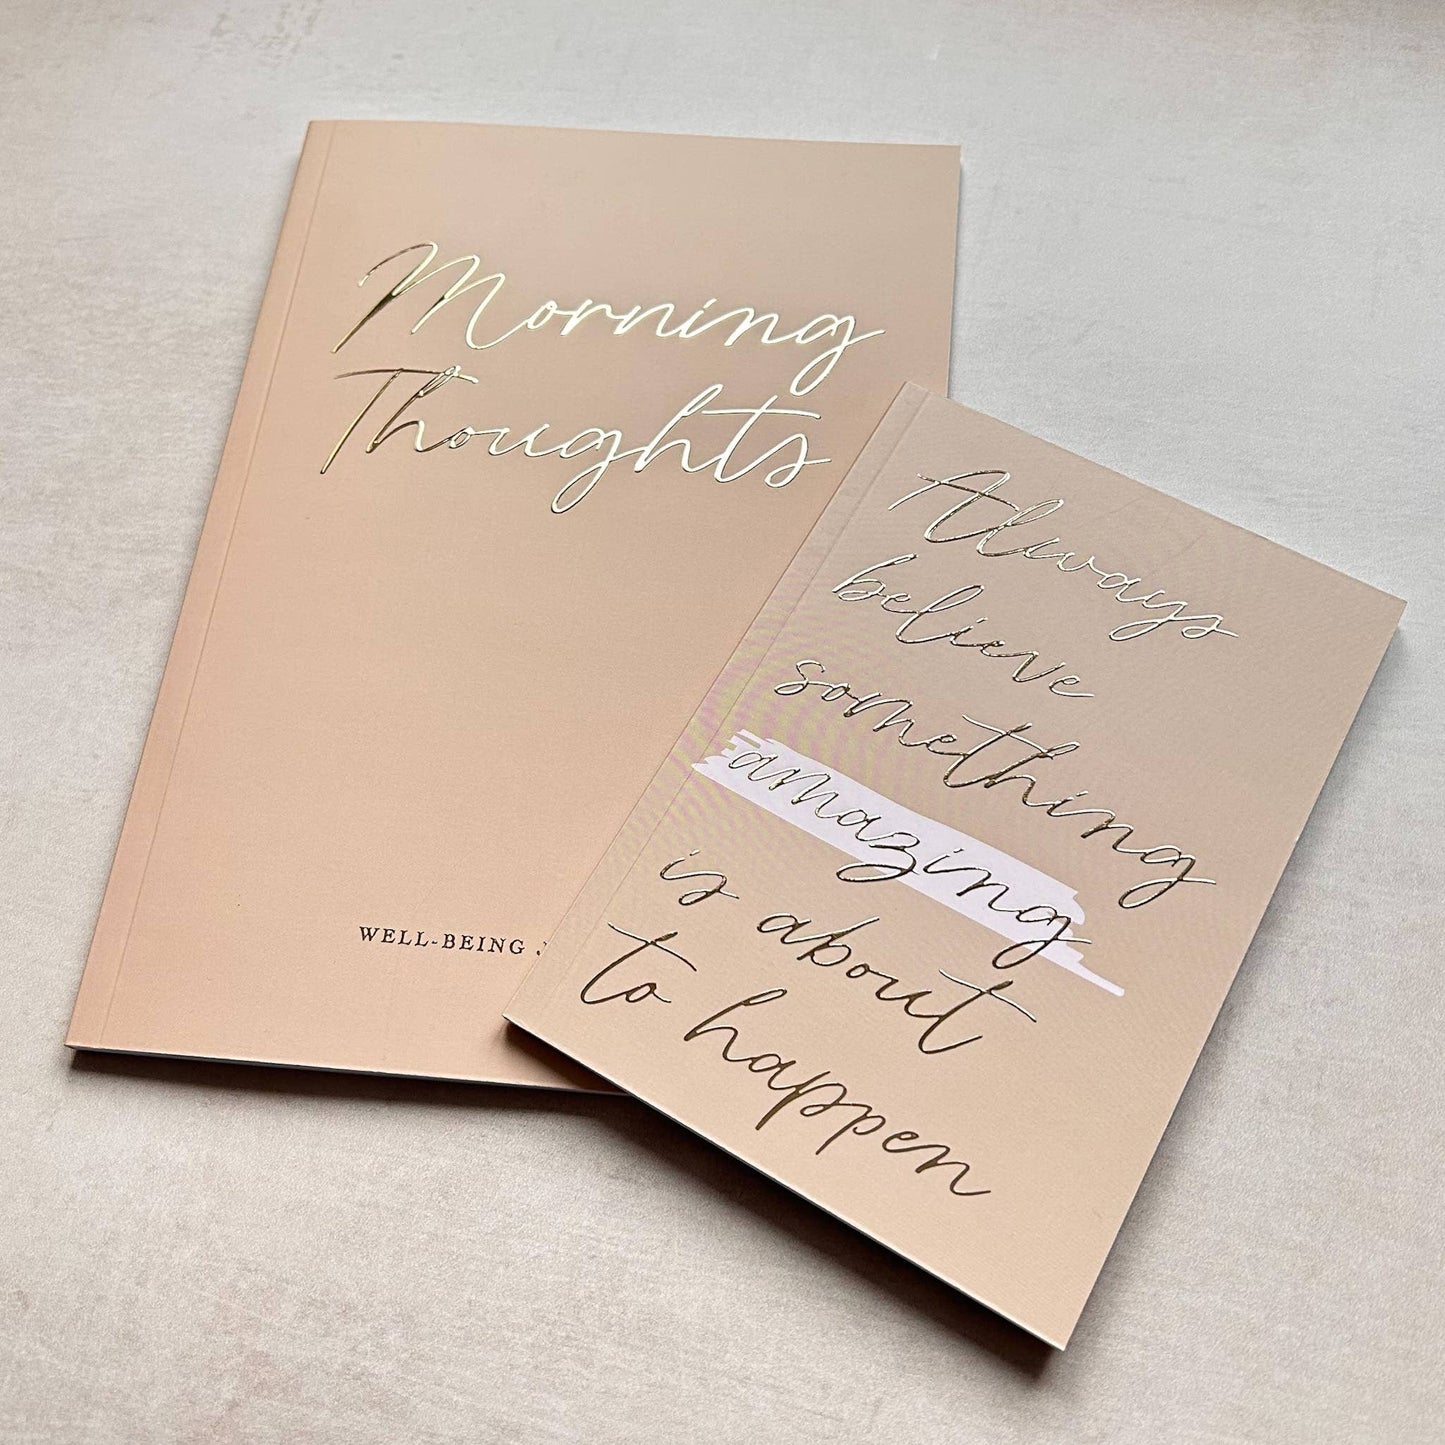 Morning
Thoughts
WELL-BEING
Always
believe
something
amazing
is about
to happen